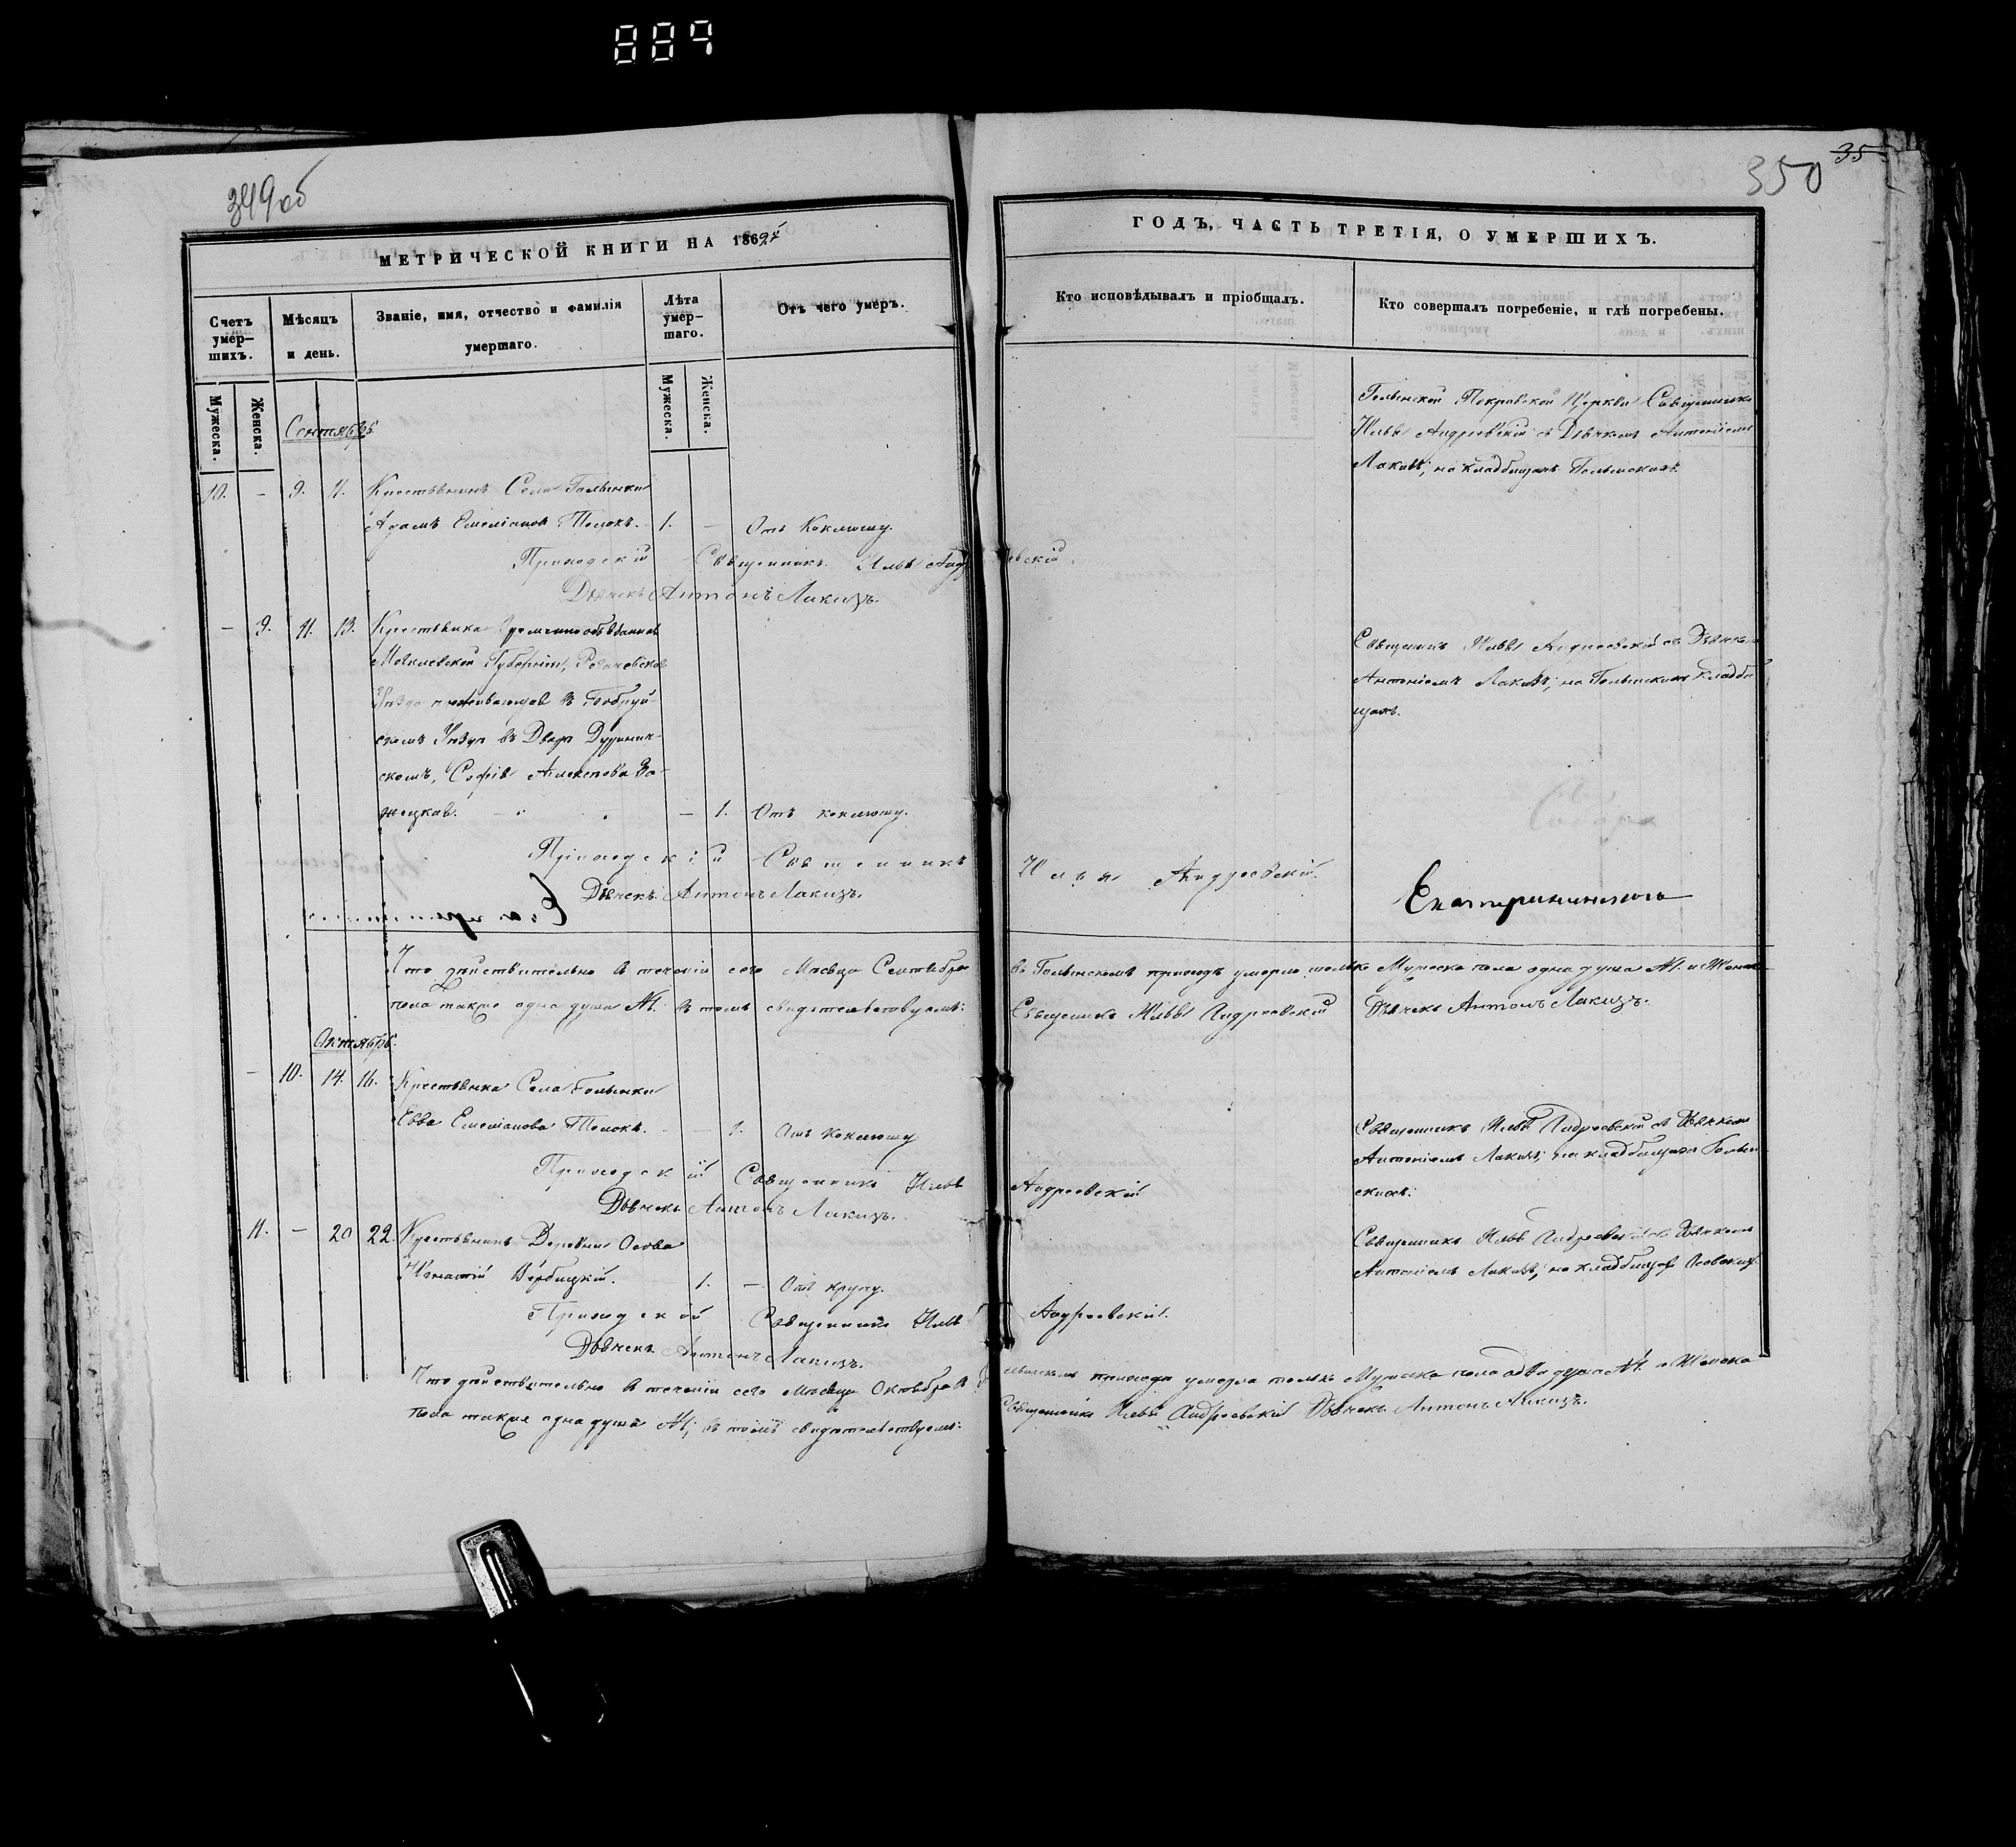 889
349 об
350
35
МЕТРИЧЕСКОЙ КНИГИ НА 1869й
ГОДЪ, ЧАСТЬ ТРЕТІЯ, О УМЕРШИХЪ.
Счетъ умер-шихъ.
Мѣсяцъ и день.
Званіе, имя, отчество и фамилія умершаго.
Лѣта умер-шаго.
Отъ чего умеръ.
Кто исповѣдывалъ и пріобщалъ.
Кто совершалъ погребеніе, и гдѣ погребены.
Мужеска.
Женска.
Мужеска.
Женска.
Сентябрь.
10. – 9. 11. Крестьянинъ Села Голынки
Адамъ Емеліановъ Телюкъ. 1. – Отъ коклюшу.
Голынской Покровской Церкви Священникъ
Илья Андреевскій съ Дьячкомъ Антоніемъ
Лакизъ; на кладбищахъ Голынскихъ.
Приходскій Священникъ Илья Андреевскій.
Дьячекъ Антонъ Лакизъ.
– 9. 11. 13. Крестьянка
Могилевской Губерніи, Рогачевского
Уѣзда проживающая въ Бобруй-
скомъ Уѣздѣ въ Дворѣ
скомъ, Софія
– 1. Отъ коклюшу.
Священникъ Илья Андреевскій съ Дьячкомъ
Антоніемъ Лакизъ; на Голынскихъ кладби
щахъ.
Приходскій Священникъ Илья Андреевскій.
Дьячекъ Антонъ Лакизъ.
Екатерининскаго
Что дѣйствительно въ теченіи сего Мѣсяца Сентября въ Голынскомъ приходѣ умерло только Мужеска пола одна душа №1. и Женска
пола также одна душа №1. въ томъ свидѣтельствуемъ: Священникъ Илья Андреевскій Дьячекъ Антонъ Лакизъ.
Октябрь.
– 10. 14. 16. Крестьянка Села Голынки
Евва Емеліанова Телюкъ. – 1. Отъ коклюшу
Священникъ Илья Андреевскій съ Дьячкомъ
Антоніемъ Лакизъ; на кладбищахъ Голын
скихъ.
Приходскій Священникъ Илья Андреевскій
Дьячекъ Антонъ Лакизъ.
11. – 20 22. Крестьянинъ Деревни Осова
Игнатій Вербицкій. 1. – Отъ крупу.
Священникъ Илья Андреевскій съ Дьячкомъ
Антоніемъ Лакизъ; на кладбищахъ Осовскихъ.
Приходской Священникъ Илья Андреевскій.
Дьячекъ Антонъ Лакизъ.
Что дѣйствительно въ теченіи сего Мѣсяца Октября въ Голынскомъ приходѣ умерла только Мужеска пола одна душа №1. и Женска
пола также одна душа №1; въ томъ свидѣтельствуемъ: Священникъ Илья Андреевскій Дьячекъ Антонъ Лакизъ.